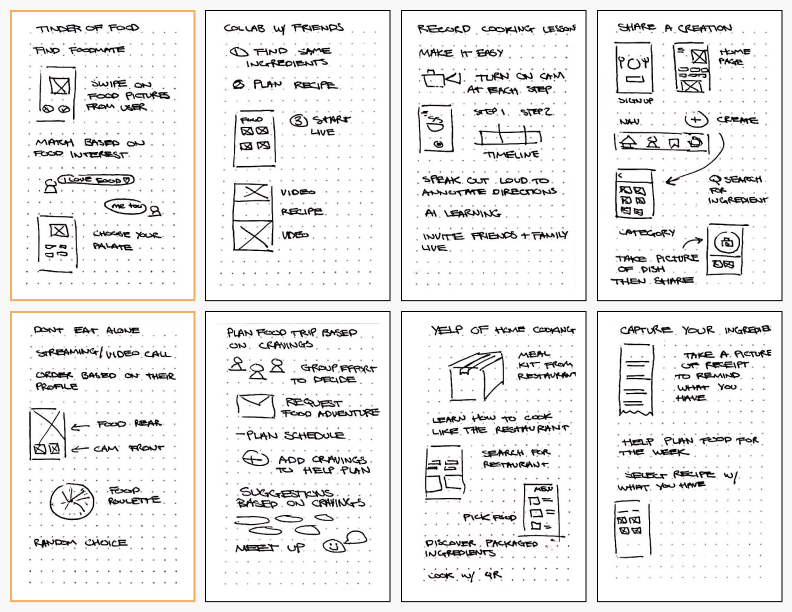 TINDER OF FOOD
FIND FOODMATE
SWIPE ON
FOOD PICTURES
FROM USER
MATCH BASED ON
FOOD INTEREST
I LOVE FOOD
ME TOO
CHOOSE YOUR
PALATE
COLLAB W/ FRIENDS
① FIND SAME
INGREDIENTS
② PLAN RECIPE
FOOD
③ START
LIVE
VIDEO
RECIPE
VIDEO
RECORD COOKING LESSON
MAKE IT EASY
TURN ON CAM
AT EACH STEP
STEP 1 STEP 2
TIMELINE
SPEAK OUT LOUD TO
ANNOTATE DIRECTIONS
AI LEARNING
INVITE FRIENDS + FAMILY
LIVE
SHARE A CREATION
HOME
PAGE
SIGNUP
NAV
CREATE
SEARCH
FOR
INGREDIENT
CATEGORY
TAKE PICTURE
OF DISH
THEN SHARE
DONT EAT ALONE
STREAMING/VIDEO CALL
ORDER BASED ON THEIR
PROFILE
← FOOD REAR
← CAM FRONT
FOOD
ROULETTE
RANDOM CHOICE
PLAN FOOD TRIP BASED
ON CRAVINGS
GROUP EFFORT
TO DECIDE
REQUEST
FOOD ADVENTURE
-PLAN SCHEDULE
ADD CRAVINGS
TO HELP PLAN
SUGGESTIONS
BASED ON CRAVINGS
MEET UP
YELP OF HOME COOKING
MEAL
KIT FROM
RESTAURANT
LEARN HOW TO COOK
LIKE THE RESTAURANT
SEARCH FOR
RESTAURANT
MENU
PICK FOOD
DISCOVER PACKAGED
INGREDIENTS
COOK W/ QR
CAPTURE YOUR INGREDIE
TAKE A PICTURE
OF RECEIPT
TO REMIND
WHAT YOU
HAVE
HELP PLAN FOOD FOR
THE WEEK
SELECT RECIPE W/
WHAT YOU HAVE